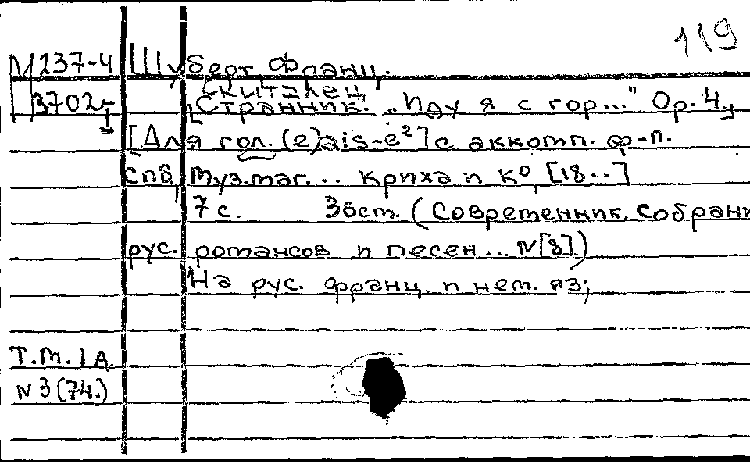 119
М237-4 Шуберт, Франц.
Скиталец
3702 [Странник. „Иду я с гор..." Op. 4,
[Для гол. (e)ais-e²] с аккомп. ф-п.
СПБ, Муз. маг. ... Криха и К⁰, [18..]
7 с. 36 ст. (Современник. Собрани
рус. романсов и песен... N[8])
На рус. франц. и нем. яз;
Т.М.1д
N 3 (74.)